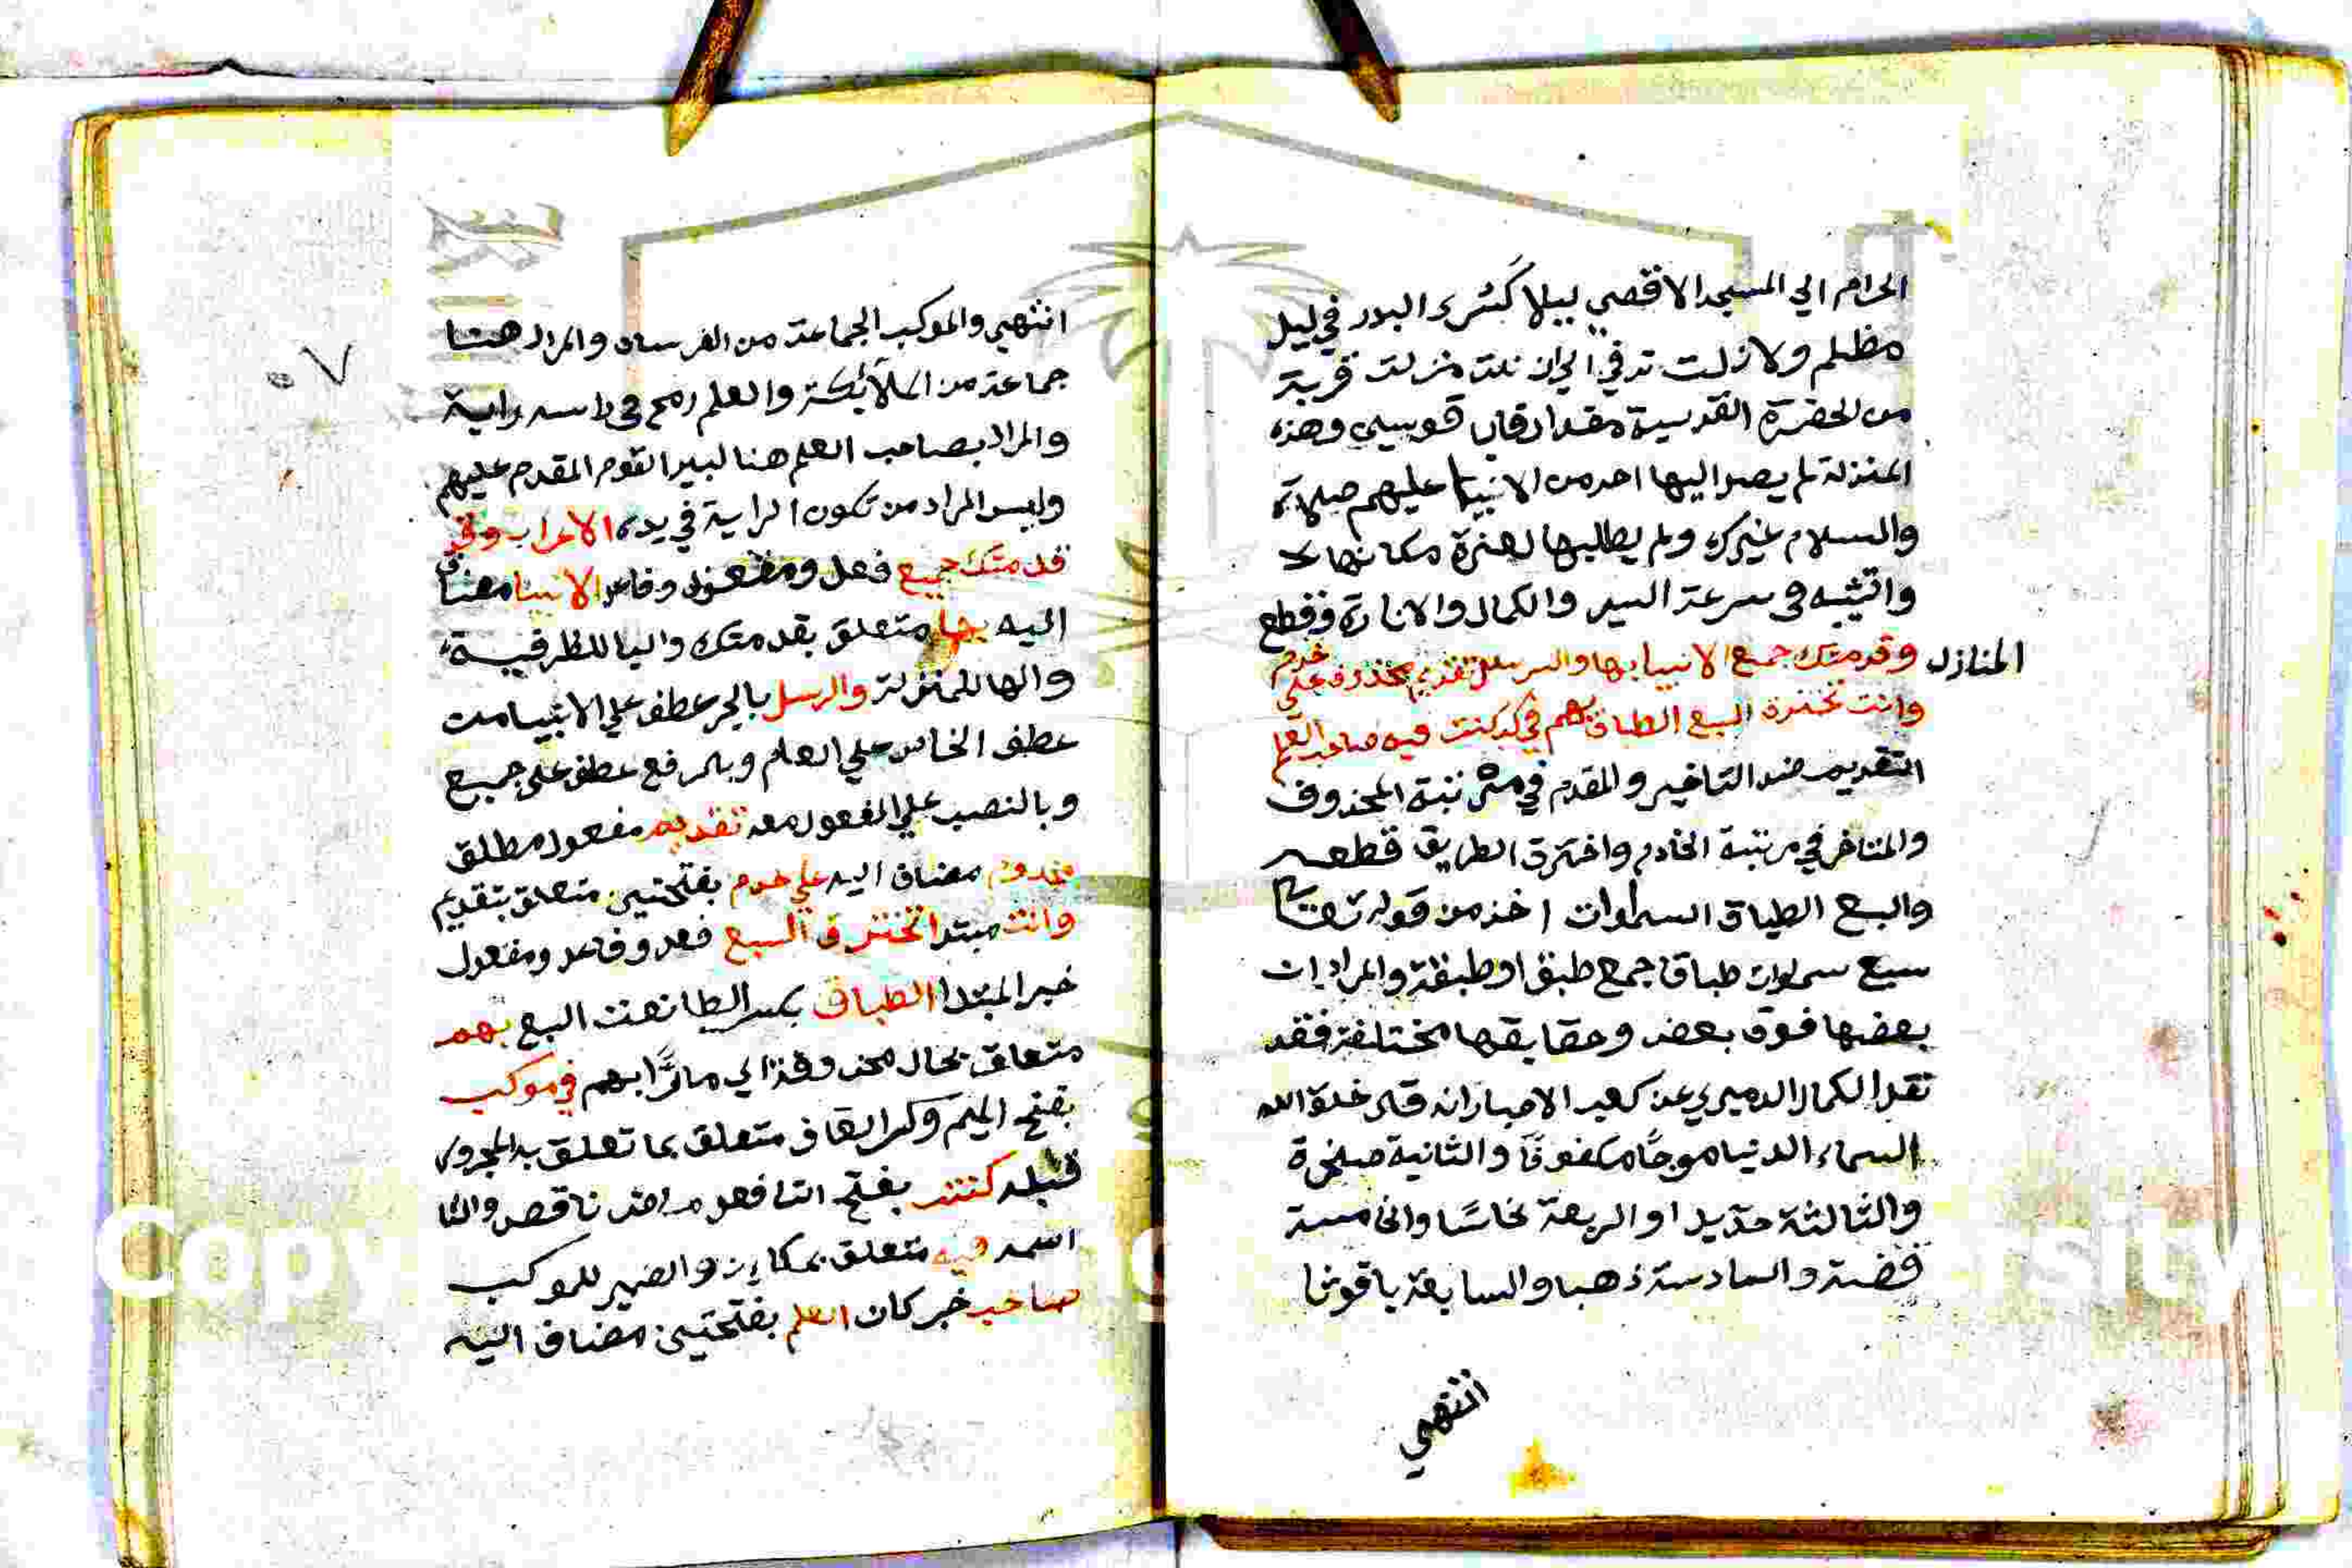 الحرام الي المسجد الاقصي ليلا كَسَري البدر في ليل
مظلم ولا زلت ترقي الي ان نلت منزلة قربة
من الحضرة القدسية مقدار قاب قوسين وهذه
المنزلة لم يصل اليها احد من الانبيا عليهم صلاة
والسلام غيرك ولم يطلبها لعزة مكانها
والتشبه في سرعة السير والكمال والانارة وقطع
المنازل
وقدمتك جميع الانبيا بها والرسل تقديم مخدوم علي خدم
وانت تخترق السبع الطباق بهم في موكب كنت فيه صاحب العلم
التقديم ضد التاخير والمقدم في مرتبة المخدوف
والمتاخر في مرتبة الخادم واخترق الطريق قطعه
والسبع الطباق السماوات اخذ من قوله تعالي
سبع سموات طباق جمع طبق او طبقة والمراد ان
بعضها فوق بعض وحقايقها مختلفة فقد
نقل الكمال الدميري عن كعب الاحبار انه قال خلق الله
السماء الدنيا موجًا مكفوفًا والثانية صخرة
والثالثة حديدا والربعة نحاسًا والخامسة
فضة والسادسة ذهبا والسابعة ياقوتا
انتهي
٥٧
انتهي والموكب الجماعة من الفرسان والمراد هنا
جماعة من الملائكة والعلم رمح في راسه راية
والمراد بصاحب العلم هنا كبير القوم المقدم عليهم
وليس المراد من تكون الراية في يده الاعراب وقوله
قدمتك جميع فعل ومفعول وفاعل الانبيا مضاف
اليه بها متعلق بقدمتك والبا للظرفية
والها للمنزلة والرسل بالجر عطف علي الانبيا من
عطف الخاص علي العام وبالرفع عطف علي جميع
وبالنصب علي المفعول معه تقديم مفعول مطلق
مخدوم مضاف اليه علي خدم بفتحتين متعلق بتقديم
وانت مبتدا تخترق السبع فعل وفاعل ومفعول
خبر المبتدا الطباق بكسر الطا نعت السبع بهم
متعلق بحال محذوفة اي مارًّا بهم في موكب
بفتح الميم وكسر القاف متعلق بما تعلق به المجرور
قبله كنت بفتح التا فعل ماض ناقص والتا
اسمه فيه متعلق بمكاين والضمير للموكب
صاحب خبر كان العلم بفتحتين مضاف اليه